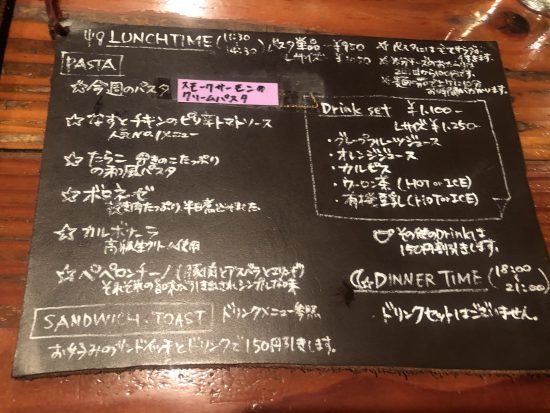 LUNCHTIME (11:30 14:30) パスタ単品 ¥950
Lサイズ
PASTA
☆今週のパスタ スモークサーモンの
クリームパスタ
☆なすとチキンのピリ辛トマトソース
人気No.1メニュー
☆たらこときのこたっぷり
の和風パスタ
☆ボロネーゼ
☆カルボナーラ
高級生クリーム使用
☆ペペロンチーノ(豚肉とアスパラとエリンギ)
SANDWICH・TOAST ドリンクメニュー参照
お好みのサンドイッチとドリンクで150円引きします。
Drink set ¥1.100-
Lサイズ ¥1.250-
・グレープフルーツジュース
・オレンジジュース
・カルピス
・ウーロン茶 (HOT or ICE)
・有機豆乳 (HOT or ICE)
その他のDrinkは
150円割引きします。
DINNER TIME (18:00
21:00)
ドリンクセットはございません。